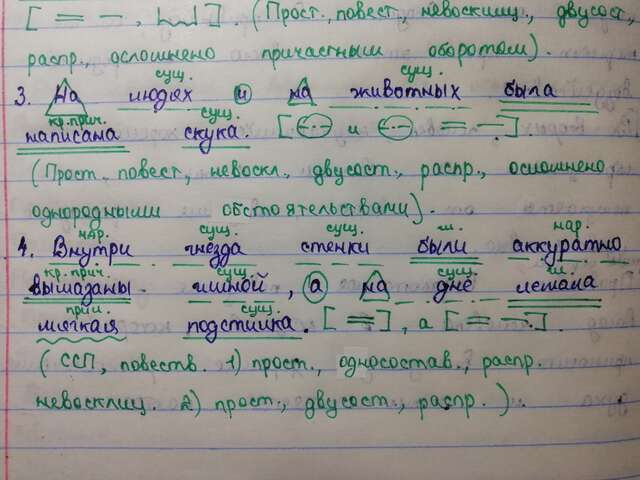 [ = –, |~~| ]. (Прост., повест., невосклиц., двусост.,
распр., осложнено причастным оборотом).
сущ. сущ.
3. На людях и на животных была
кр.прич. сущ.
написана скука. [ (-·-) и (-·-) = – ].
(Прост., повест., невоскл., двусост., распр., осложнено
однородными обстоятельствами).
нар. сущ. сущ. гл. нар.
4. Внутри гнезда стенки были аккуратно
кр.прич. сущ. сущ. гл.
вымазаны глиной, а на дне лежала
прил. сущ.
мягкая подстилка. [ = ], а [ = – ].
(ССП, повеств. 1) прост., односостав., распр.
невосклиц. 2) прост., двусост., распр.).